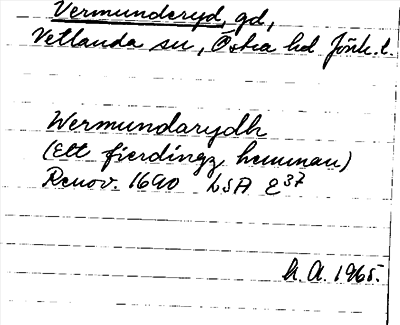 Vermunderyd, gd,
Vetlanda sn, Östra hd Jönk. l.
Wermundarydh
(Ett fierdingz hemman)
Renov. 1690 LSA E37
h. A. 1965.